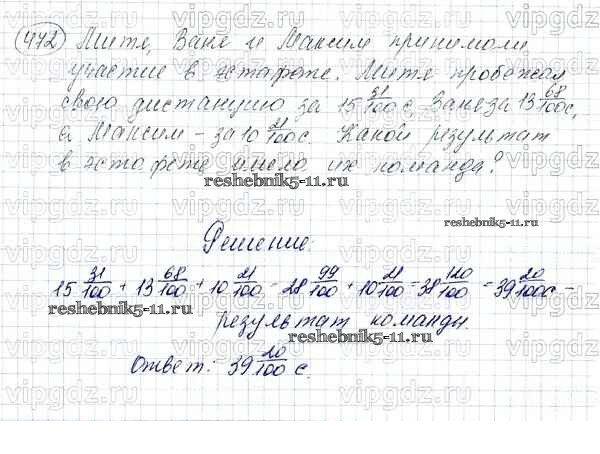 472 Митя, Ваня и Максим принимали
участие в эстафете. Митя пробежал
свою дистанцию за 15 31/100 с, Ваня за 13 68/100 с,
а Максим - за 10 21/100 с. Какой результат
в эстафете имела их команда?
reshebnik5-11.ru
reshebnik5-11.ru
Решение:
15 31/100 + 13 68/100 + 10 21/100 = 28 99/100 + 10 21/100 = 38 120/100 = 39 20/100 с -
reshebnik5-11.ru
результат команды.
reshebnik5-11.ru
Ответ: 39 20/100 с.
vipgdz.com